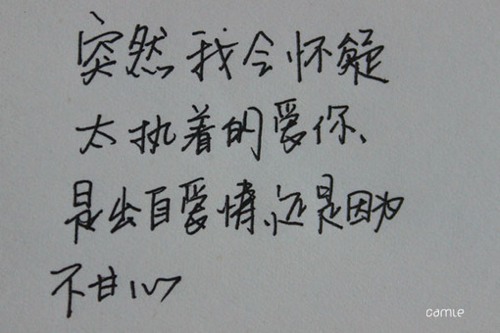 突然我会怀疑
太执着的爱你、
是出自爱情、还是因为
不甘心
camle